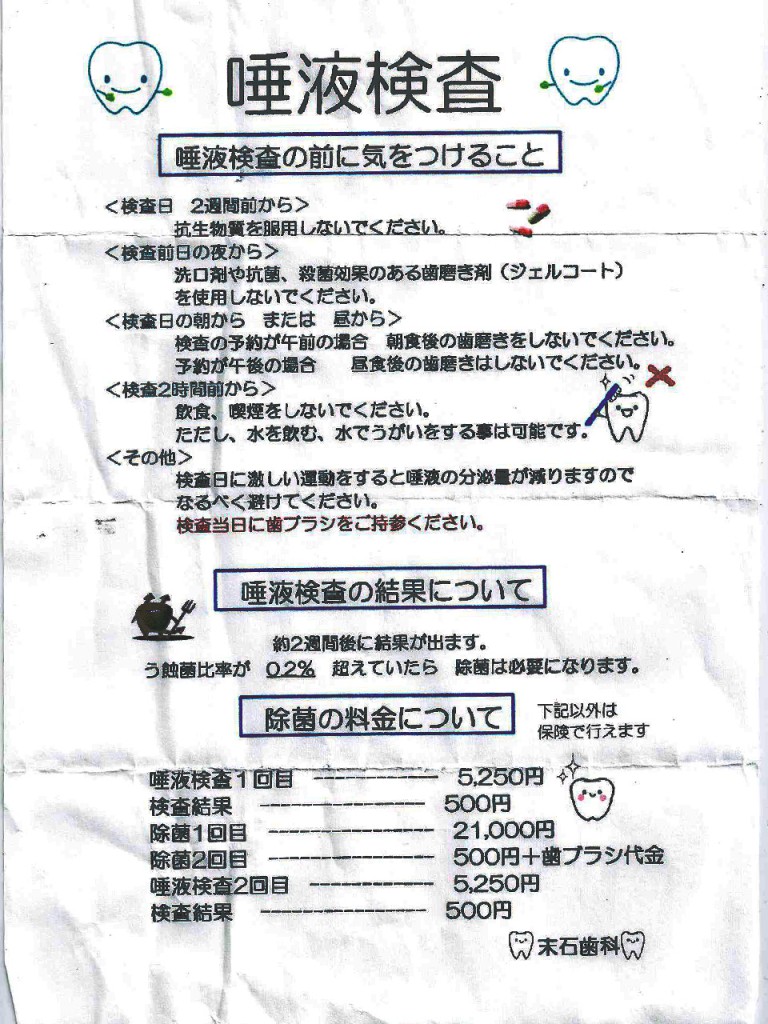 唾液検査
唾液検査の前に気をつけること
<検査日　2週間前から>
抗生物質を服用しないでください。
<検査前日の夜から>
洗口剤や抗菌、殺菌効果のある歯磨き剤（ジェルコート）
を使用しないでください。
<検査日の朝から　または　昼から>
検査の予約が午前の場合　朝食後の歯磨きをしないでください。
予約が午後の場合　　昼食後の歯磨きはしないでください。
<検査2時間前から>
飲食、喫煙をしないでください。
ただし、水を飲む、水でうがいをする事は可能です。
<その他>
検査日に激しい運動をすると唾液の分泌量が減りますので
なるべく避けてください。
検査当日に歯ブラシをご持参ください。
唾液検査の結果について
約2週間後に結果が出ます。
う蝕菌比率が　0.2%　超えていたら　除菌は必要になります。
除菌の料金について
下記以外は
保険で行えます
唾液検査1回目 ---------------- 5,250円
検査結果 ---------------------- 500円
除菌1回目 --------------------- 21,000円
除菌2回目 --------------------- 500円＋歯ブラシ代金
唾液検査2回目 ---------------- 5,250円
検査結果 ---------------------- 500円
末石歯科